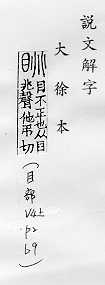 說文解字
大徐本
眺 目不正也从目
兆聲他弔切
(目部
V4上
p2
b9)